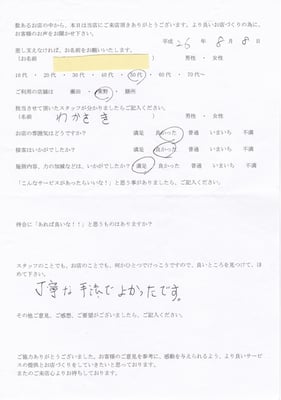 数ある店の中から、本日は当店にご来店頂きありがとうございます。より良いお店づくりの為に、
お客様のお声をお聞かせ下さい。
平成 26 年 8 月 8 日
差し支えなければ、お名前をお願いいたします。
(お名前 ) 男性・女性
10代・20代・30代・40代・50代・60代・70代〜
ご利用の店舗は
担当させて頂いたスタッフが分かりましたらご記入ください。
(名前 わかさき ) 男性・女性
お店の雰囲気はどうですか? 満足 良かった 普通 いまいち 不満
接客はいかがでしたか? 満足 良かった 普通 いまいち 不満
施術内容、力の加減などは、いかがでしたか? 満足 良かった 普通 いまいち 不満
「こんなサービスがあったらいいな!」と思う事がありましたら、ご記入ください。
待合に「あれば良いな!!」と思うものはありますか?
スタッフのことでも、お店のことでも、何かひとつでけっこうですので、良いところを見つけて、ほ
めて下さい。
丁寧な手法でよかったです。
その他ご意見、ご感想、ご要望がございましたら、ご記入ください。
ご協力ありがとうございました。お客様のご意見を参考に、感動を与えられるよう、より良いサービ
スの提供とお店づくりをしていきたいと思っております。
またのご来店心よりお待ちしております。